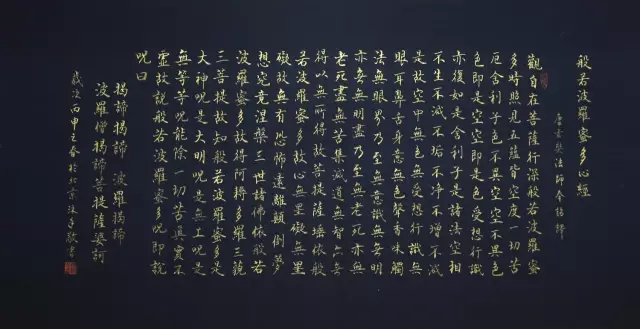 般若波羅蜜多心經
唐玄奘法師奉詔譯
觀自在菩薩行深般若波羅蜜
多時照見五蘊皆空度一切苦
厄舍利子色不異空空不異色
色即是空空即是色受想行識
亦復如是舍利子是諸法空相
不生不滅不垢不淨不增不減
是故空中無色無受想行識無
眼耳鼻舌身意無色聲香味觸
法無眼界乃至無意識無無明
亦無無明盡乃至無老死亦無
老死盡無苦集滅道無智亦無
得以無所得故菩提薩埵依般
若波羅蜜多故心無罣礙無罣
礙故無有恐怖遠離顛倒夢
想究竟涅槃三世諸佛依般若
波羅蜜多故得阿耨多羅三藐
三菩提故知般若波羅蜜多是
大神咒是大明咒是無上咒是
無等等咒能除一切苦真實不
虛故說般若波羅蜜多咒即說
咒曰
揭諦揭諦 波羅揭諦
波羅僧揭諦菩提薩婆訶
歲次丙申之春於北京